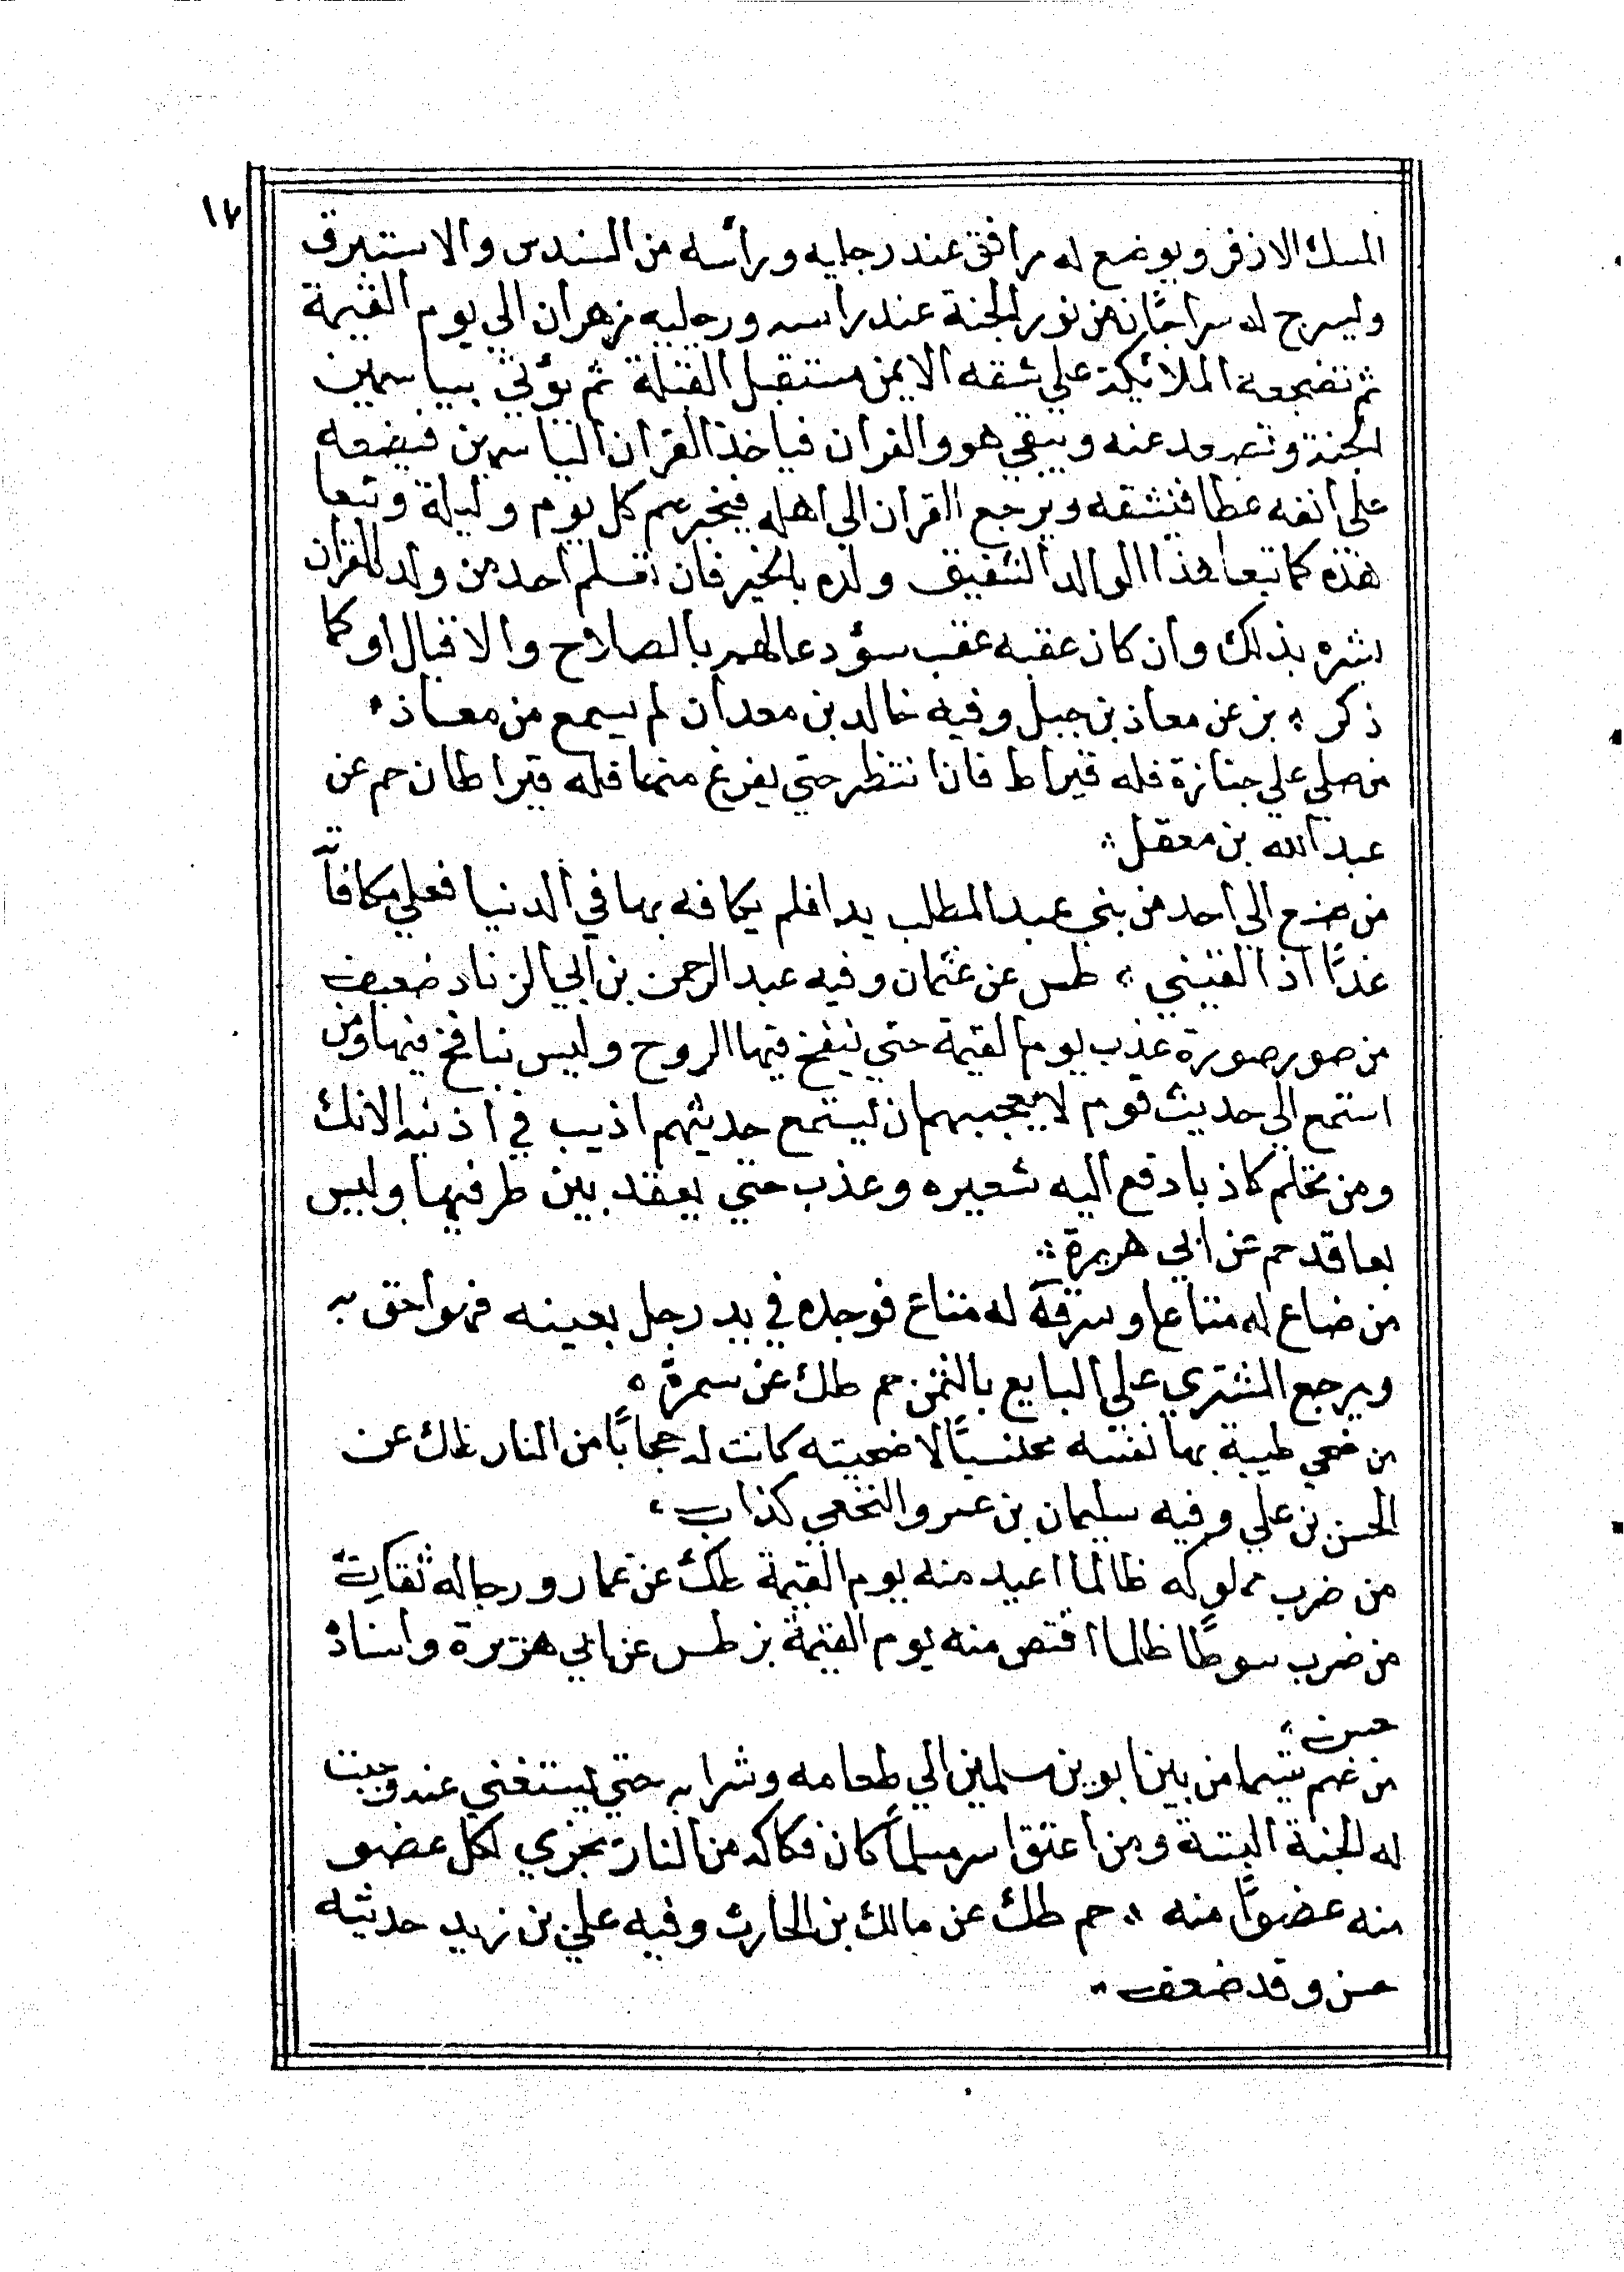 ١٧
المسك الاذفر ويوضع له مرافق عند رجليه ورأسه من السندس والاستبرق
وليسرج له سراجًا من نور الجنة عند راسه ورجليه يزهران الي يوم القيمة
ثم تضجعه الملائكة علي شقه الايمن مستقبل القبلة ثم يؤتي بياسمين
الجنة وتصعد عنه ويبقي هو والقران فياخذ القران الياسمين فيضعه
علي أنفه غطا فنشقه ويرجع القران الي أهله فيخبرهم كل يوم وليلة وتعا
هذه كما تعاهذ الوالد الشفيق ولده بالخير فان تعلم أحد من ولد القران
بشره بذلك وان كان عقبه عقب سؤ دعا لهم بالصلاح والاقبال او كما
ذكر بز عن معاذ بن جبل وفيه خالد بن معدان لم يسمع من معاذ
من صلي علي جنازة فله قيراط فان انتظر حتي يفرغ منها فله قيراطان حم عن
عبد الله بن معقل
من صنع الي أحد من بني عبد المطلب يدا فلم يكافه بها في الدنيا فعلي مكافأته
غدًا اذا لقيني طس عن عثمان وفيه عبد الرحمن بن أبي الزناد ضعيف
من صور صورة عذب يوم القيمة حتي ينفخ فيها الروح وليس بنافخ فيها ومن
استمع الي حديث قوم لا يعجبهم ان يستمع حديثهم اذيب في اذنيه الانك
ومن تحلم كاذبا دفع اليه شعيره وعذب حتي يعقد بين طرفيها وليس
بعاقد حم عن ابي هريرة
من ضاع له متاع او سرقة له متاع فوجده في يد رجل بعينه فهو أحق به
ويرجع المشتري علي البايع بالثمن حم طك عن سمرة
من ضحي طيبة بها نفسه محتسبًا لاضحيته كانت له حجابًا من النار طك عن
الحسن بن علي وفيه سليمان بن عمرو النخعي كذاب
من ضرب مملوكه ظالما اعيد منه يوم القيمة طك عن عمار ورجاله ثقات
من ضرب سوطًا ظالما اقتص منه يوم القيمة بز طس عن ابي هريرة واسناده
حسن
من ضم يتيما من بين ابوين مسلمين الي طعامه وشرابه حتي يستغني عنه وجبت
له الجنة البتة ومن أعتق امر مسلمًا كان فكاكه من النار يجزي لكل عضو
منه عضوًا منه حم طك عن مالك بن الحارث وفيه علي بن زيد حديثه
حسن وقد ضعف